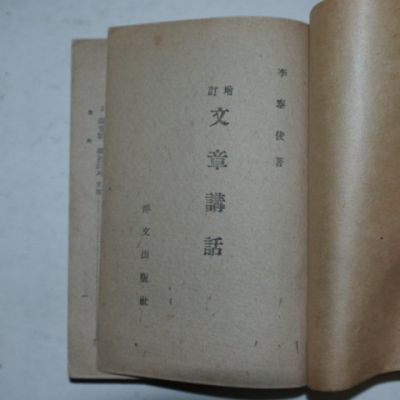 李泰俊著
增訂
文章講話
博文出版社